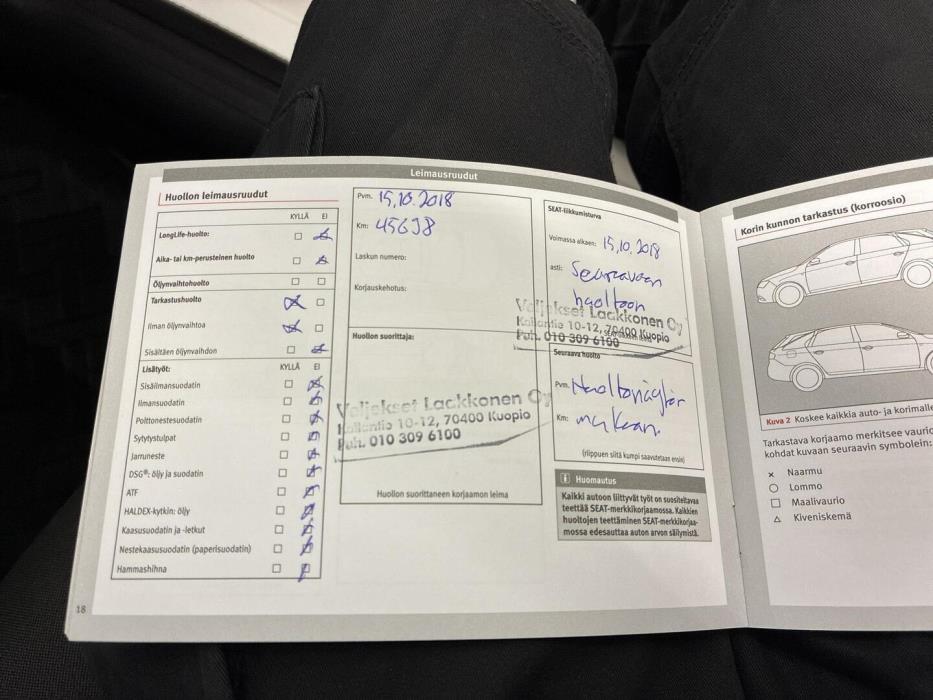 Leimausruudut
Huollon leimausruudut
KYLLÄ EI
LongLife-huolto:
Aika- tai km-perusteinen huolto
Öljynvaihtohuolto
Tarkastushuolto
Ilman öljynvaihtoa
Sisältäen öljynvaihdon
Lisätyöt: KYLLÄ EI
Sisäilmansuodatin
Ilmansuodatin
Polttonestesuodatin
Sytytystulpat
Jarruneste
DSG®: öljy ja suodatin
ATF
HALDEX-kytkin: öljy
Kaasusuodatin ja -letkut
Nestekaasusuodatin (paperisuodatin)
Hammashihna
18
Pvm. 15.10.2018
Km: 45638
Laskun numero:
Korjauskehotus:
Huollon suorittaja:
Veljekset Laakkonen Oy
Kallantie 10-12, 70400 Kuopio
Puh. 010 309 6100
Huollon suorittaneen korjaamon leima
SEAT-liikkumisturva
Voimassa alkaen: 15.10.2018
asti: Seuraavaan
huoltoon
Veljekset Laakkonen Oy
Kallantie 10-12, 70400 Kuopio
Puh. 010 309 6100
Seuraava huolto
Pvm. Huoltonäytön
Km: mukaan.
(riippuen siitä kumpi saavutetaan ensin)
Huomautus
Kaikki autoon liittyvät työt on suositeltavaa
teettää SEAT-merkkikorjaamossa. Kaikkien
huoltojen teettäminen SEAT-merkkikorjaa-
mossa edesauttaa auton arvon säilymistä.
Korin kunnon tarkastus (korroosio)
Kuva 2 Koskee kaikkia auto- ja korimalle
Tarkastava korjaamo merkitsee vaurio
kohdat kuvaan seuraavin symbolein:
× Naarmu
○ Lommo
□ Maalivaurio
△ Kiveniskemä